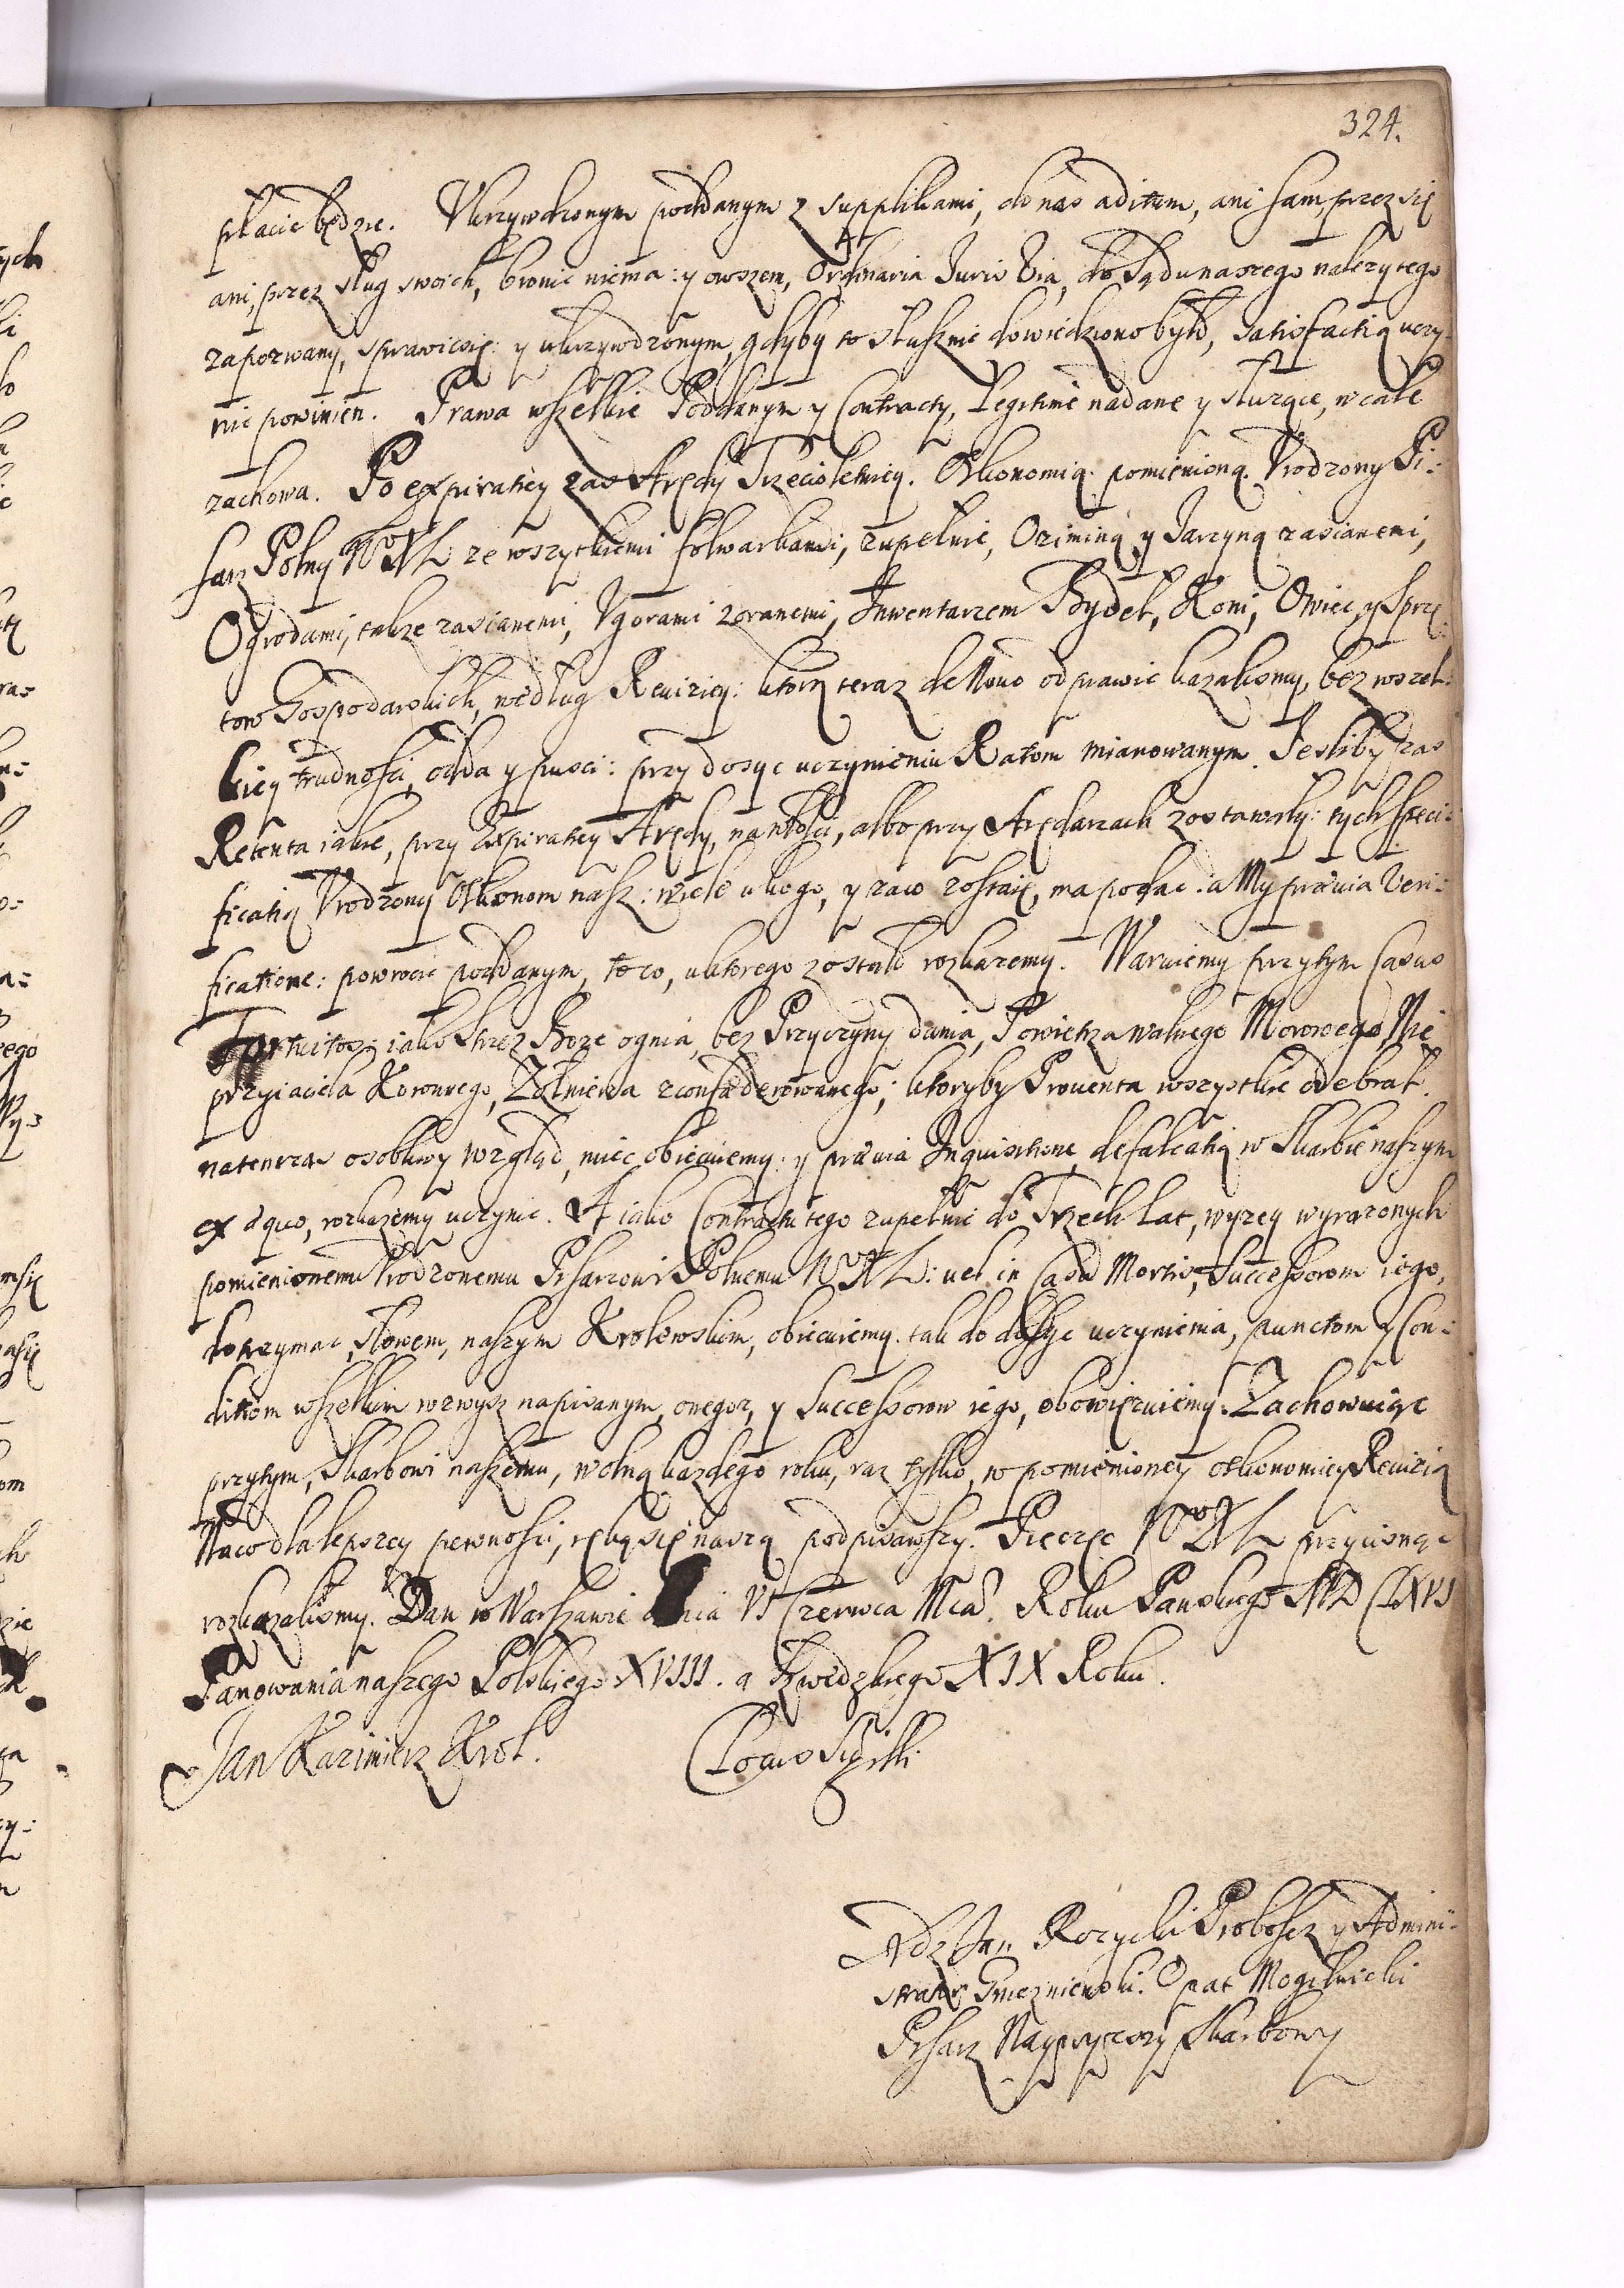 324.
płacic będzie. Ukrzywdzonym poddanym z supplikami, do nas aditum, ani sam, przez się
ani, przez sług swoich, bronic niema: y owszem, Ordinaria Juris Via, do Sądu naszego nalezytego
zapozwany, sprawicsię: y ukrzywdzonym, gdyby to słusznie dowiedziono było, satisfactią uczy-
nic powinien. Prawa wszelkie Poddanym y Contracty, Legitimè nadane y słuzące, wcale
zachowa. Po expiratiey zas Arędy Trzecioletniey. Oekonomią pomienioną Urodzony Pi:
sarz Polny WXL ze wszytkiemi folwarkami, zupełnie, Oziminą y Jarzyną zasianemi,
Ogrodami, takze zasianemi, Ugorami zoranemi, Inwentarzem Bydeł, Koni, Owiec, y Sprzę
tow Gospodarskich, według Rewiziey: ktorą teraz de Novo odprawic kazalismy, bez wszel:
kiey trudnosci, odda y pusci: przy dosyc uczynieniu Ratom mianowanym. Jesliby zas
Retenta iakie, przy Expiratiey Arędy, na włosci, albo przy Arędarzach zostawały: tych Speci:
ficatią Urodzony Oekonom nasz: wiele u kogo, y zaco zostaię, ma podac: a My prævia Veri:
ficatione: powrocic poddanym, to co, u ktorego zostało rozkazemy. Waruiemy przytym Casus
Fortuitos: iako strzez Boze ognia, bez Przyczyny dania, Powietrza walnego Morowego Nie
przyiaciela Koronnego, Zołnierza zconfæderowanego; ktoryby Prouenta wszystkie odebrał.
natenczas osobliwy wzgląd, miec obiecuiemy: y prævia Inquisitione, defalcatią w Skarbie naszym
ex æquo, rozkazemy uczynic. A iako Contractu tego zupełnie do Trzech Lat, wyzey wyrazonych
pomienionemu Urodzonemu Pisarzowi Polnemu WXL: vel in Casu Mortis, Successorom iego,
dotrzymac, słowem, naszym Krolewskim, obiecuiemy: tak do dosyc uczynienia, punctom y Con:
ditiom wszelkim wzwysz napisanym, onegoz, y Successorow iego, obowięzuiemy. Zachowuiąc
przytym, Skarbowi naszemu, wolną kazdego roku, raz tylko, w pomienioney oekonomiey Rewizią
Naco dla lepszey pewnosci, ręką się naszą podpisawszy. Pieczęc WXL przycisnąc
rozkazalismy. Dan w Warszawie dnia VI Czerwca Mca. Roku Panskiego MDCLXVI
Panowania naszego Polskiego XVIII. a Szwedzkiego XIX Roku.
Jan Kazimierz Krol. Locus Sigilli
Xdz Jan Rozycki Proboszcz y Admini-
strator Gnieznienski. Opat Mogilnicki
Pisarz Naywyzszy Skarbowy